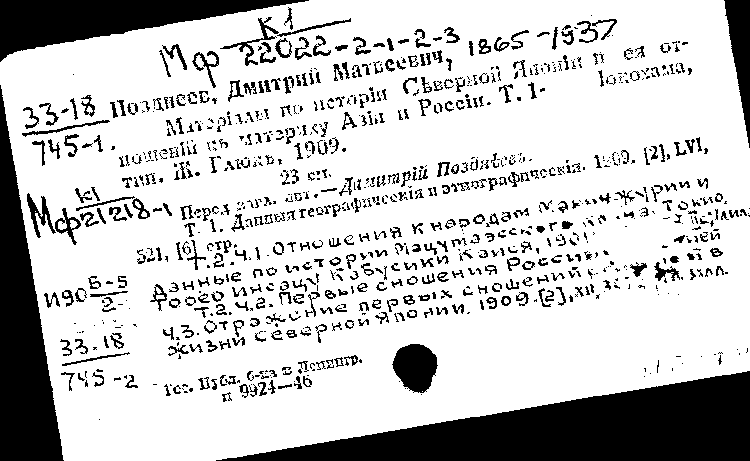 К1
Мф 22022-2-1-2-3
33-18
745-1.
Позднеев, Дмитрий Матвеевич, 1865-1937
Матеріалы по исторіи Сѣверной Японіи и ея от-
ношеній къ материку Азіи и Россіи. Т. 1- Іокохама,
тип. Ж. Глюкъ, 1909.
23 см.
К1
Мф21218-1
Перед загл. авт.—Димитрій Позднѣевъ.
Т. 1. Данныя географическія и этнографическія. 1909. [2], LVI,
521, [6] стр.
Т.2.Ч.1. Отношения к народам Манчжурии и
Данные по истории Мацумаэского кн-ва. Токио,
Тообо Инсацу Кабусики Кайся, 190
И90 Б-5
2
Т.2.Ч.2. Первые сношения России с
Ч.3. Отражение первых сношений в
жизни Северной Японии. 1909. [2], XII,
33-18
745-2
Гос. Публ. б-ка в Ленингр.
п 9924—46